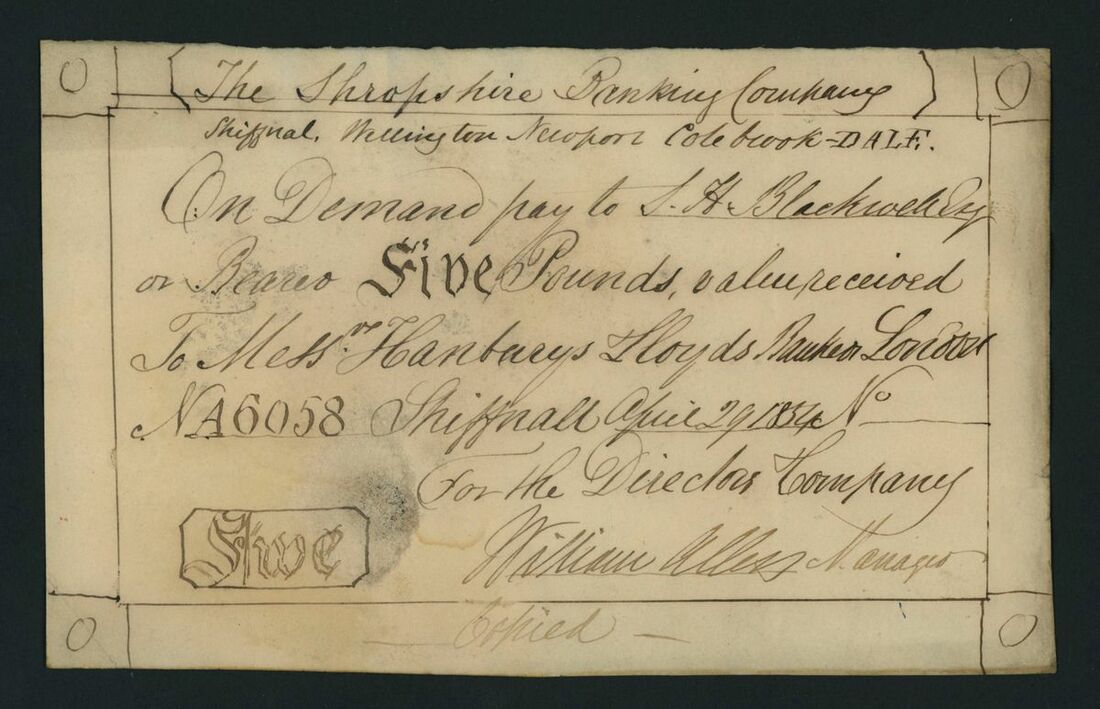 The Shropshire Banking Company
Shiffnal, Wellington Newport Colebrook-DALE.
On Demand pay to S. H. Blackwell Esq
or Bearer Five Pounds, value received
To Messrs Hanburys Lloyds Banker London
No A6058 Shiffnall April 29 1854 No
For the Director Company
Five William Allen Manager
Copied